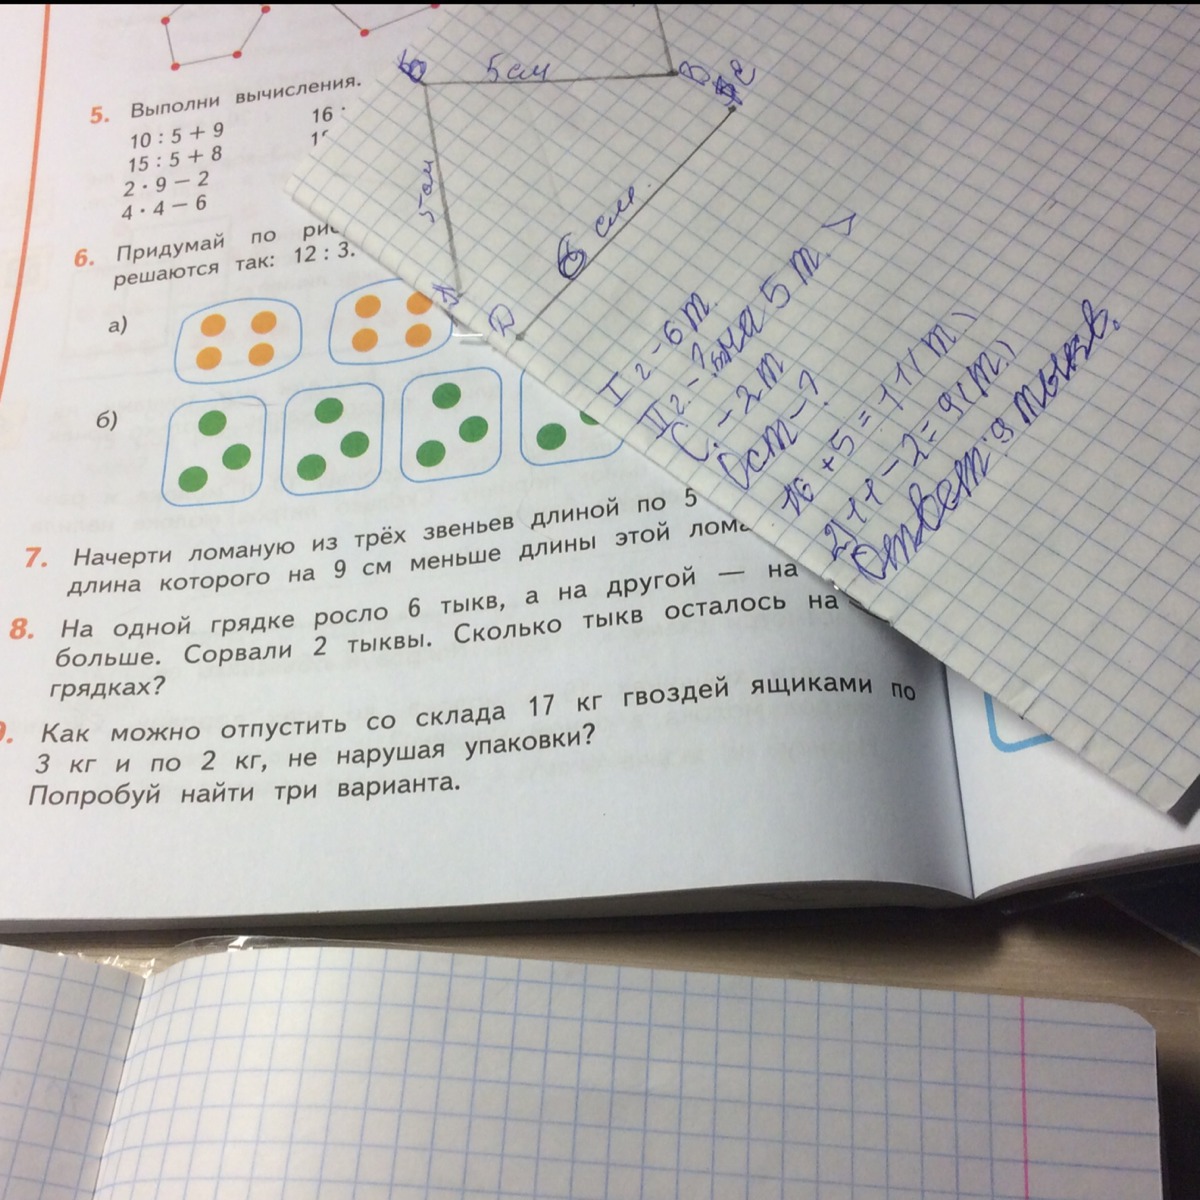 5. Выполни вычисления.
10 : 5 + 9
16 :
15 : 5 + 8
2 · 9 − 2
4 · 4 − 6
6. Придумай по
решаются так: 12 : 3.
а)
б)
7. Начерти ломаную из трёх звеньев длиной по 5
длина которого на 9 см меньше длины этой
8. На одной грядке росло 6 тыкв, а на другой — на
больше. Сорвали 2 тыквы. Сколько тыкв осталось на
грядках?
9. Как можно отпустить со склада 17 кг гвоздей ящиками по
3 кг и по 2 кг, не нарушая упаковки?
Попробуй найти три варианта.
5 см
5 см
6 см.
Д
I г - 6 т.
II г. - ? на 5 т. >
С. - 2 т
Ост - ?
6 + 5 = 11 (т)
2) 11 - 2 = 9 (т.)
Ответ: 9 тыкв.